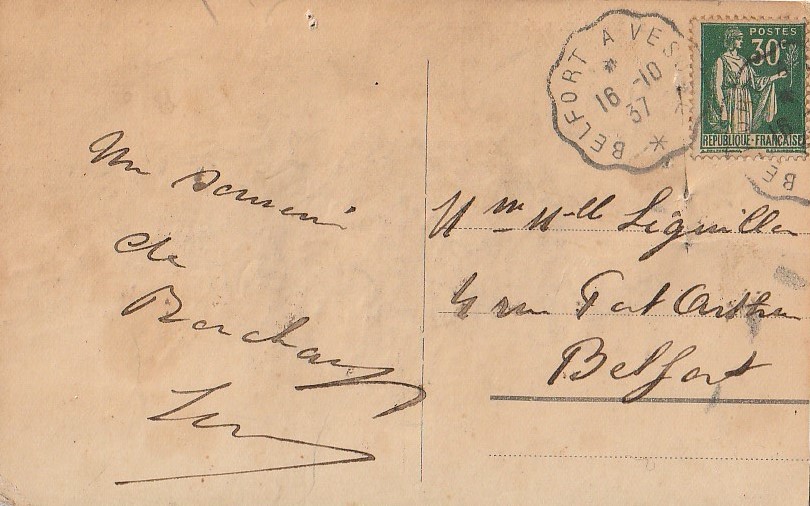 Un souvenir
de
Bonchamp
BELFORT A VES
16 -10
37
POSTES
30c
REPUBLIQUE-FRANÇAISE
BE
Mme Melle
4 rue Port Arthur
Belfort